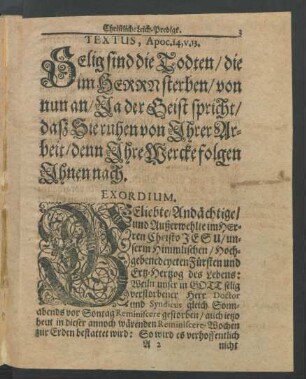 Christliche Leich-Predigt. 3
TEXTUS, Apoc. 14, v. 13.
Selig sind die Todten / die
im HERRN sterben / von
nun an / Ja der Geist spricht /
daß Sie ruhen von Ihrer Ar-
beit / denn Ihre Wercke folgen
Ihnen nach.
EXORDIUM.
GEliebte / Andächtige /
und Außerwehlte im HEr-
ren Christo JESU / un-
serm Himmlischen / Hoch-
gebenedeyeten Fürsten und
Ertz-Hertzog des Lebens:
Weiln unser in GOTT selig
verstorbener Herr Doctor
und Syndicus gleich Sonn-
abends vor Sontag Reminiscere gestorben / auch itzo
heut in dieser annoch wärenden Reminiscere-Wochen
zur Erden bestattet wird: So wird es verhoffentlich
A 2 nicht